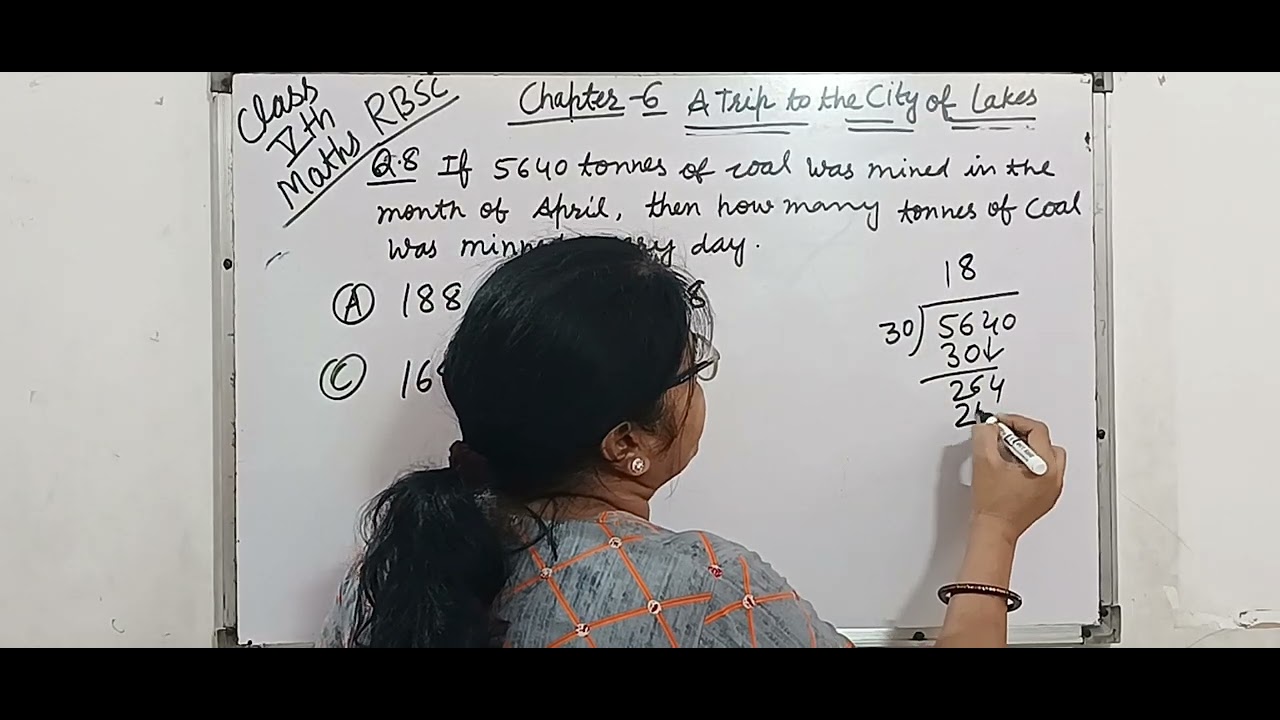 Class
Vth
Maths RBSC
Chapter-6 A Trip to the City of Lakes
Q.8 If 5640 tonnes of coal was mined in the
month of April, then how many tonnes of Coal
was day.
A 188
C
18
30)5640
30↓
264